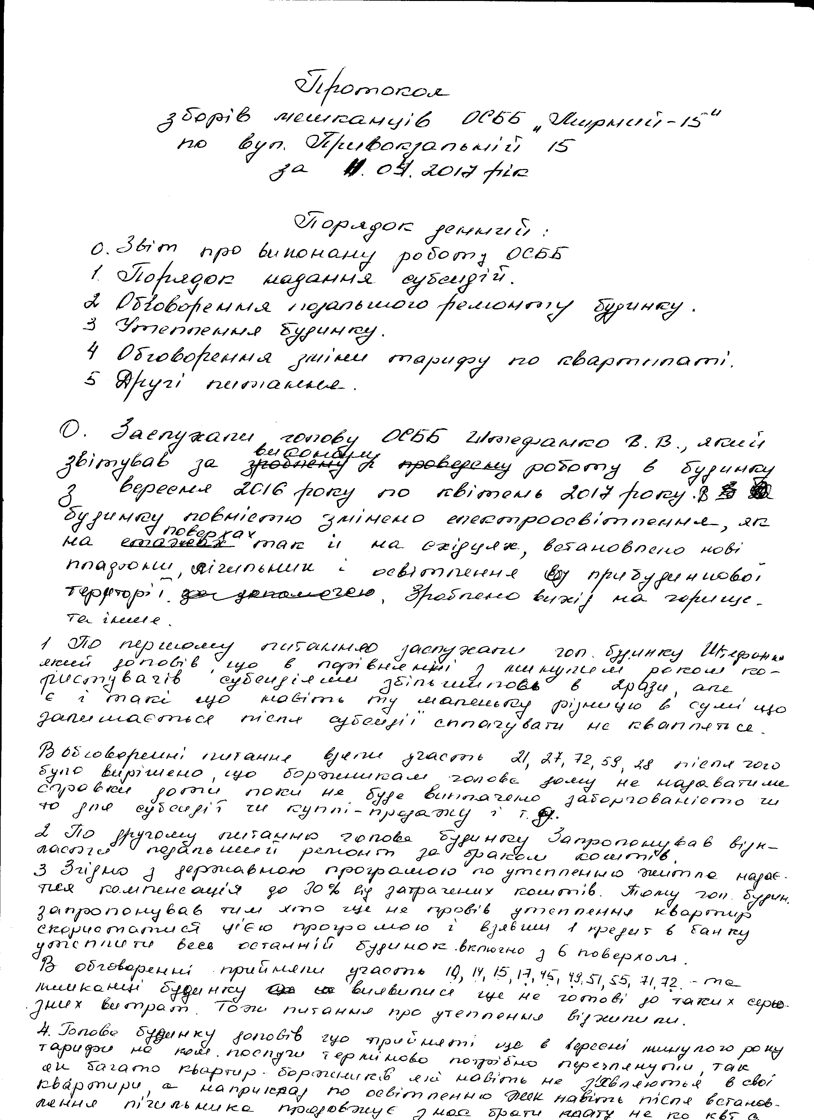 Протокол
зборів мешканців ОСББ „Мирний-15"
по вул. Привокзальній 15
за 11.04.2017 рік
Порядок денний:
0. Звіт про виконану роботу ОСББ
1. Порядок надання субсидій.
2 Обговорення подальшого ремонту будинку.
3 Утеплення будинку.
4 Обговорення зміни тарифу по квартплаті.
5 Другі питання.
0. Заслухали голову ОСББ Штефанко В.В., який
виконану
звітував за зроблену і проведену роботу в будинку
з вересня 2016 року по квітень 2017 року. В
будинку повністю змінено електроосвітлення, як
поверхах
на етажах так й на східцях, встановлено нові
плафони, лічильник і освітлення прибудинкової
території за допомогою. Зроблено вихід на горище.
та інше.
1 По першому питанню заслухали гол. будинку Штефанко
який доповів, що в порівненні з минулим роком ко-
ристувачів субсидіями збільшилось в 2рази, але
є і такі що навіть ту маленьку різницю в сумі що
залишається після субсидії сплачувати не кваплятся.
В обговоренні питання взяли участь 21, 27, 72, 59, 28 після чого
було вирішено, що боржникам голова дому не надаватиме
справки доти поки не буде виплачено заборгованість чи
то для субсидії чи куплі-продажу і т.д.
2 По другому питанню голова будинку Запропонував відк-
ласти подальший ремонт за браком коштів.
3 Згідно з державною програмою по утепленню житла надає-
тся компенсація до 30% від затрачених коштів. Тому гол. будин.
запропонував тим хто ще не провів утеплення квартир
скористатися цією програмою і взявши 1 кредит в банку
утеплити весь останній будинок включно з 6 поверхом.
В обговоренні прийняли участь 10, 14, 15, 17, 45, 49, 51, 55, 71, 72 - та
мешканці будинку виявились ще не готові до таких серйо-
зних витрат. Тож питання про утеплення відхилили.
4. Голова будинку доповів що прийняті ще в вересні минулого року
тарифи на ком. послуги терміново потрібно переглянути, так
як багато квартир боржників які навіть не зʼявляються в свої
квартири, а наприклад по освітленню навіть після встанов-
лення лічильника продовжує з нас брати плату не по квт а